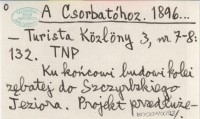 A Csorbatóhoz. 1896...
— Turista Közlöny 3, nr 7-8:
132. TNP
Ku końcowi budowi kolei
zębatej do Szczyrbskiego
Jeziora. Projekt przedłuże-